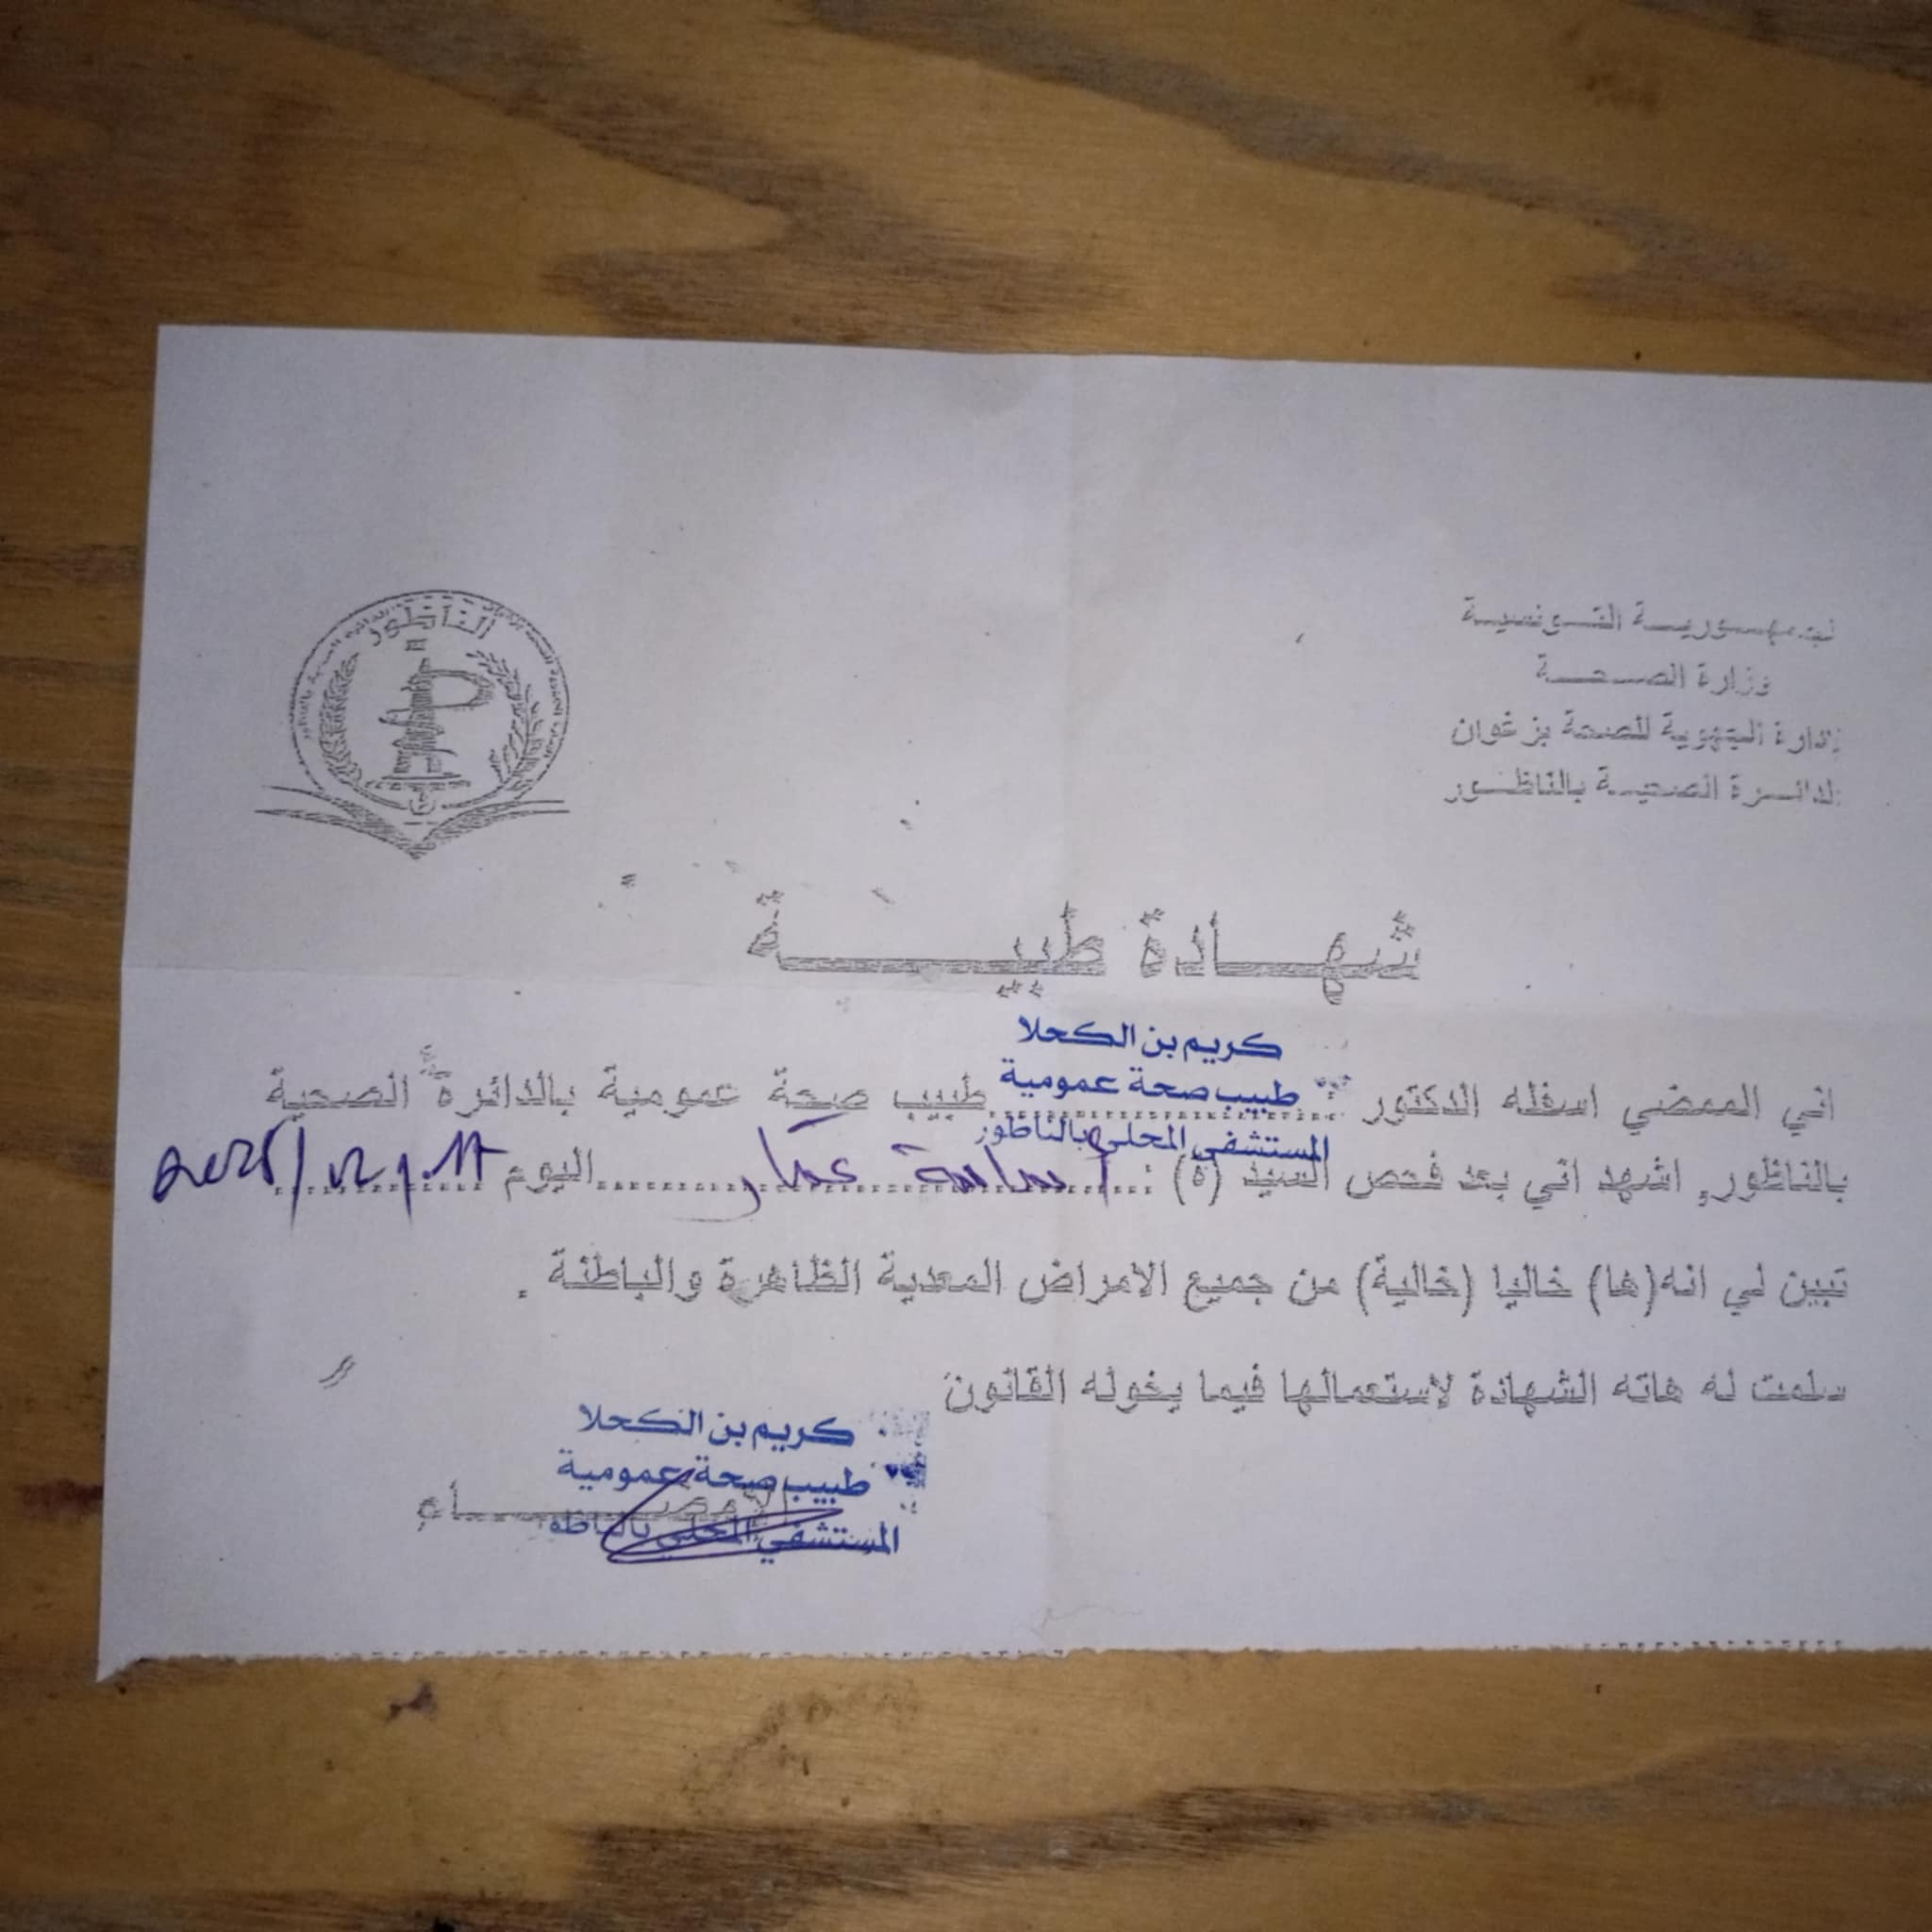 الناظور
الجمهورية التونسية
وزارة الصحة
الإدارة الجهوية للصحة بزغوان
الدائرة الصحية بالناظور
شهادة طبية
كريم بن الكحلا
طبيب صحة عمومية
المستشفى المحلي بالناظور
اني الممضي اسفله الدكتور طبيب صحة عمومية بالدائرة الصحية
بالناظور, اشهد اني بعد فحص السيد (ة) : اسامة عمار اليوم
تبين لي انه(ها) خاليا (خالية) من جميع الامراض المعدية الظاهرة والباطنة .
سلمت له هاته الشهادة لاستعمالها فيما يخوله القانون
كريم بن الكحلا
طبيب صحة عمومية
الامضاء
المستشفى المحلي بالناظو